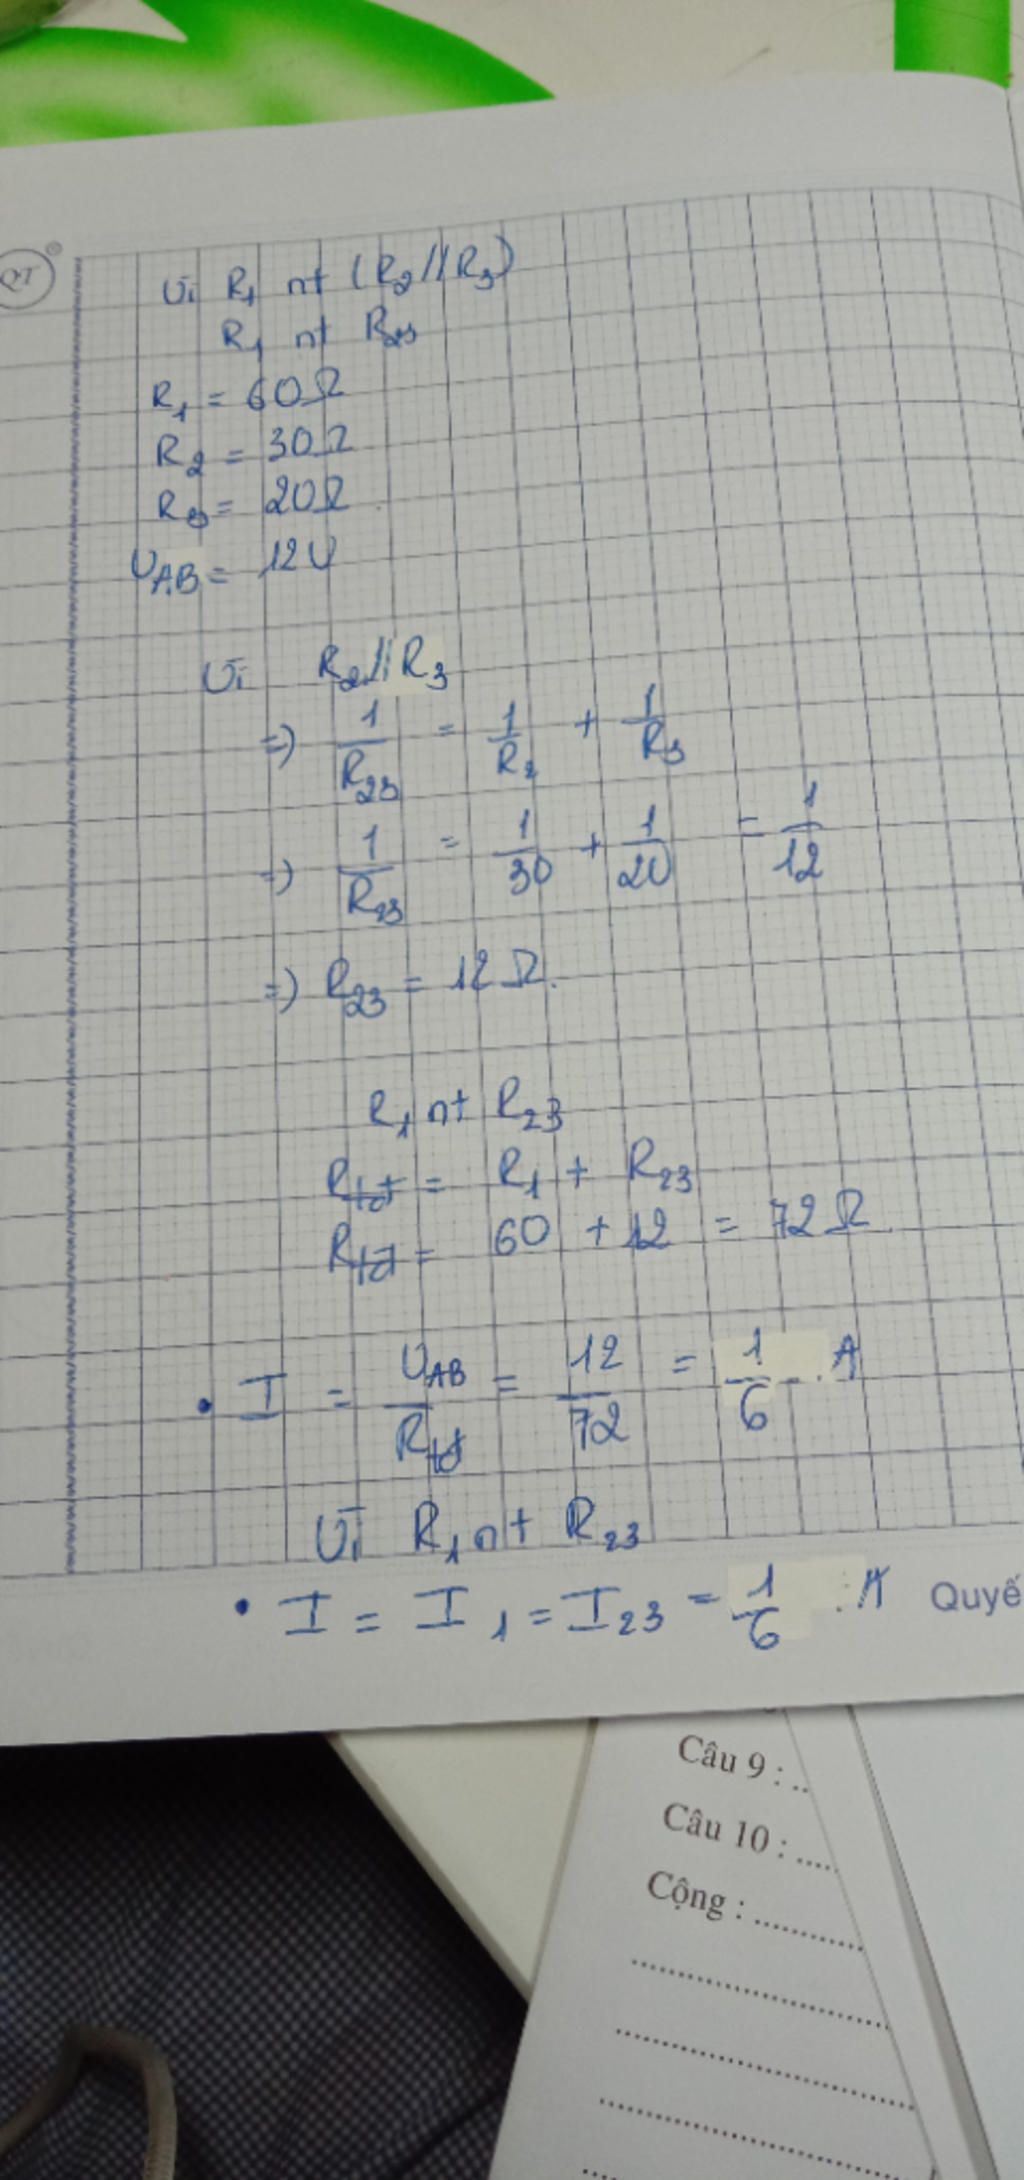 QT
Vì R₁ nt (R₂//R₃)
R₁ nt R₂₃
R₁ = 60Ω
R₂ = 30Ω
R₃ = 20Ω
U_AB = 12V
Vì R₂//R₃
=) 1/R₂₃ = 1/R₂ + 1/R₃
=) 1/R₂₃ = 1/30 + 1/20 = 1/12
=) R₂₃ = 12Ω.
R₁ nt R₂₃
R_tđ = R₁ + R₂₃
R_tđ = 60 + 12 = 72Ω
• I = U_AB/R_tđ = 12/72 = 1/6 A
Vì R₁ nt R₂₃
• I = I₁ = I₂₃ = 1/6 A
Quyế
Câu 9 : ..
Câu 10 : ....
Cộng : ...........